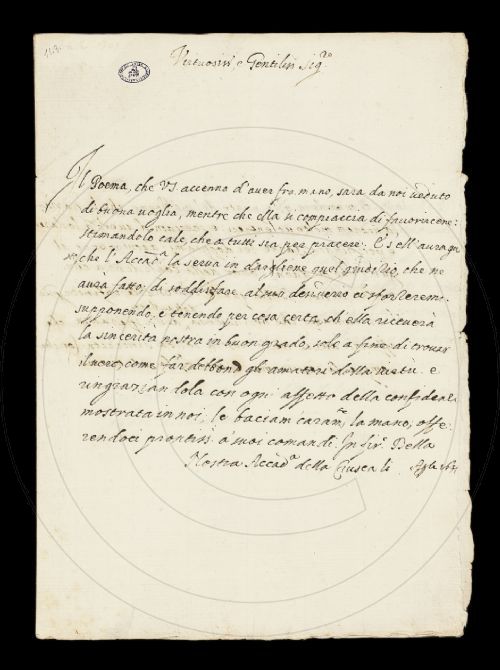 143.
Virtuosiss. e Gentiliss. Sig.ro
Il Poema, che VS accenna d'aver fra mano, sarà da noi veduto
di buona voglia, mentre che ella si compiaccia di favorircene:
stimandolo tale, che a tutti sia per piacere. E s'ell'aurà gu
che l'Accad.a la serva in dargliene quel giudizio, che ne
aurà fatto, di soddisfare al suo ci sforzerem:
supponendo, e tenendo per cosa certa, ch'ella riceverà
la sincerità nostra in buon grado, solo a fine di trovar
il vero, come far debbono gli amatori della virtù. e
ringraziandola con ogni affetto della confidenza
mostrata in noi, le baciam caram.te la mano, offe:
rendoci prontiss. a suoi comandi. Di Fir.e Della
Nostra Accad.a della Crusca li